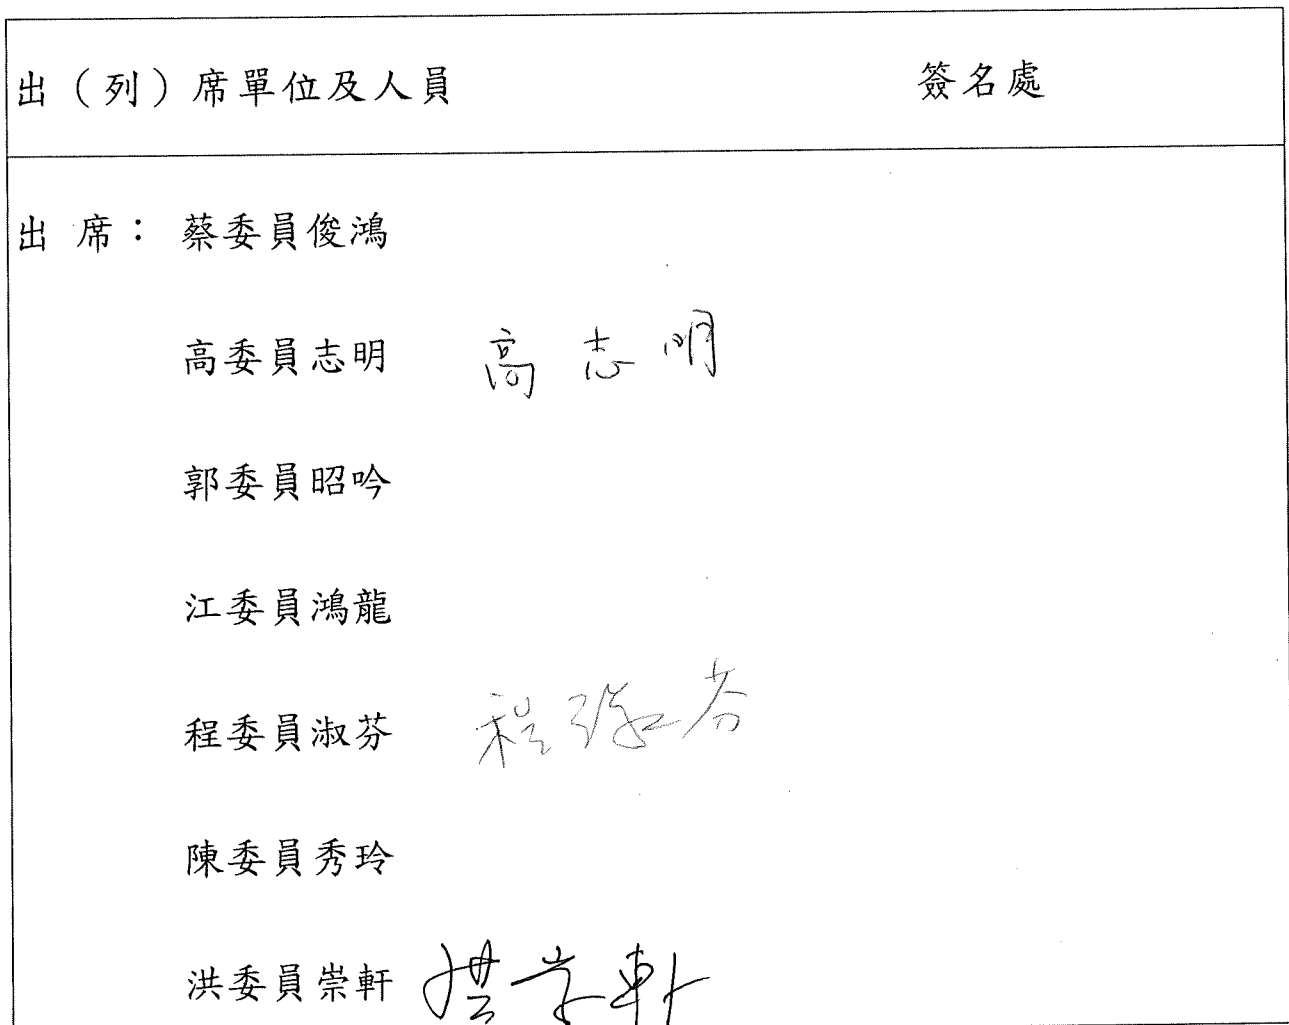 出（列）席單位及人員 簽名處
出 席： 蔡委員俊鴻
高委員志明 高志明
郭委員昭吟
江委員鴻龍
程委員淑芬 程淑芬
陳委員秀玲
洪委員崇軒 洪崇軒